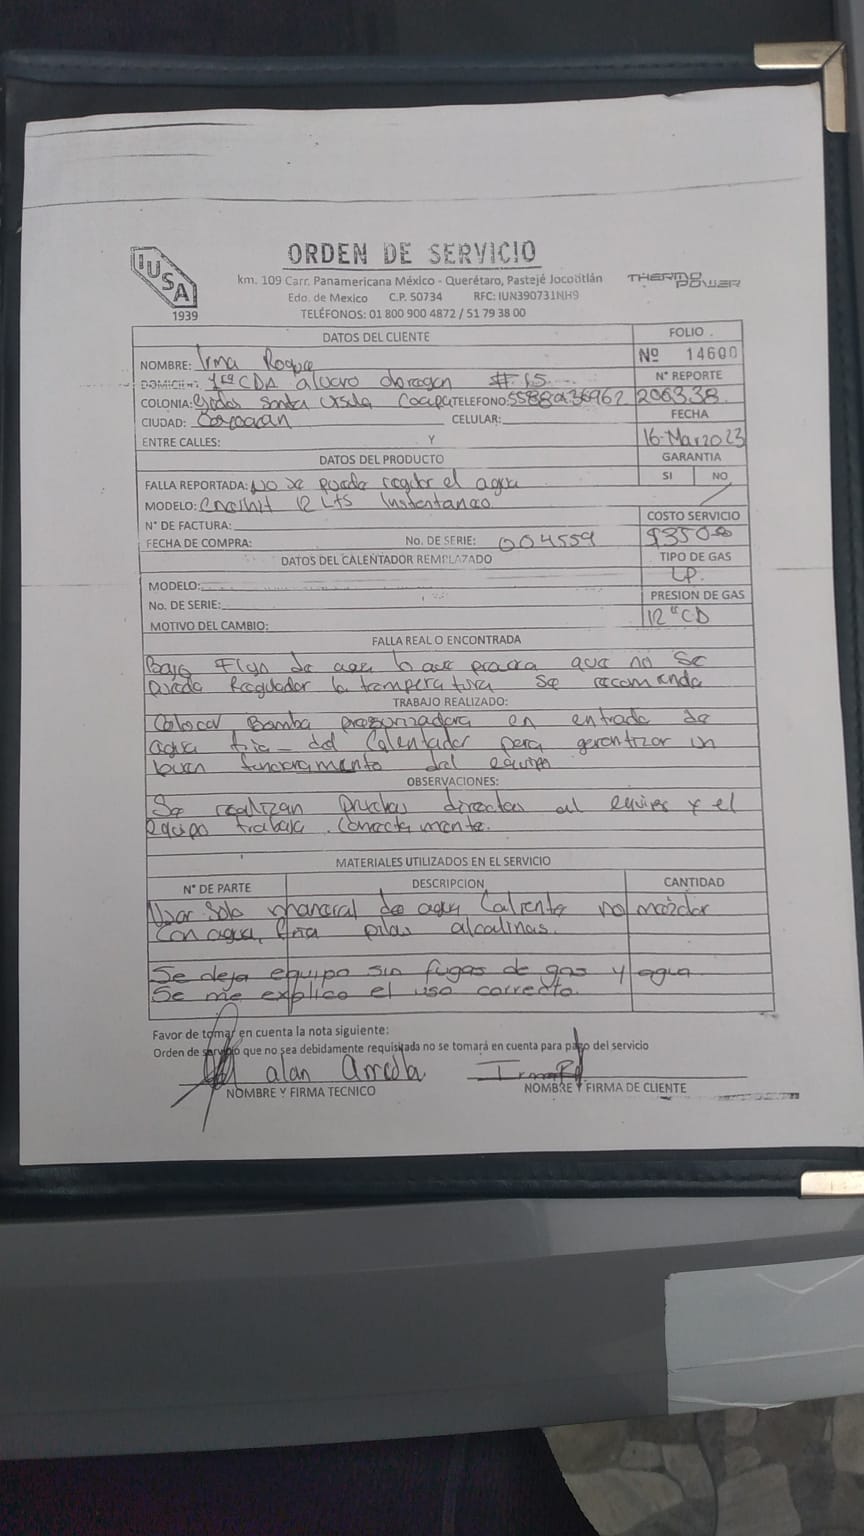 IUSA
1939
ORDEN DE SERVICIO
km. 109 Carr. Panamericana México - Querétaro, Pastejé Jocotitlán
Edo. de Mexico C.P. 50734 RFC: IUN390731NH9
TELÉFONOS: 01 800 900 4872 / 51 79 38 00
THERMO POWER
DATOS DEL CLIENTE
FOLIO
Nº 14600
NOMBRE: Irma Roque
N° REPORTE
DOMICILIO: 1ra CDA alvaro obregon # 15
206338
COLONIA: Ejidos Santa Ursula Coapa TELEFONO:
FECHA
CIUDAD: Coyoacan CELULAR:
ENTRE CALLES: Y
16-Mar2023
DATOS DEL PRODUCTO
GARANTIA
SI NO
FALLA REPORTADA: NO se puede regular el agua
MODELO: 12 Lts Instantaneo
N° DE FACTURA:
COSTO SERVICIO
$350.00
FECHA DE COMPRA: No. DE SERIE: 004559
DATOS DEL CALENTADOR REMPLAZADO
TIPO DE GAS
LP.
MODELO:
No. DE SERIE:
PRESION DE GAS
MOTIVO DEL CAMBIO:
12" CD
FALLA REAL O ENCONTRADA
Bajo Flujo de agua lo que provoca que no se
pueda Reguador la temperatura se recomienda
TRABAJO REALIZADO:
Colocar Bomba presurizadora en entrada de
agua fria del Calentador para garantizar un
buen funcionamiento del equipo
OBSERVACIONES:
Se realizan pruebas directas al equipo y el
equipo trabaja correctamente.
MATERIALES UTILIZADOS EN EL SERVICIO
N° DE PARTE DESCRIPCION CANTIDAD
Usar Solo maneral de agua Caliente no mezclar
Con agua fria pilas alcalinas.
Se deja equipo sin fugas de gas y agua
Se me explico el uso correcto.
Favor de tomar en cuenta la nota siguiente:
Orden de servicio que no sea debidamente requisitada no se tomará en cuenta para pago del servicio
alan Arreola
NOMBRE Y FIRMA TECNICO
NOMBRE Y FIRMA DE CLIENTE